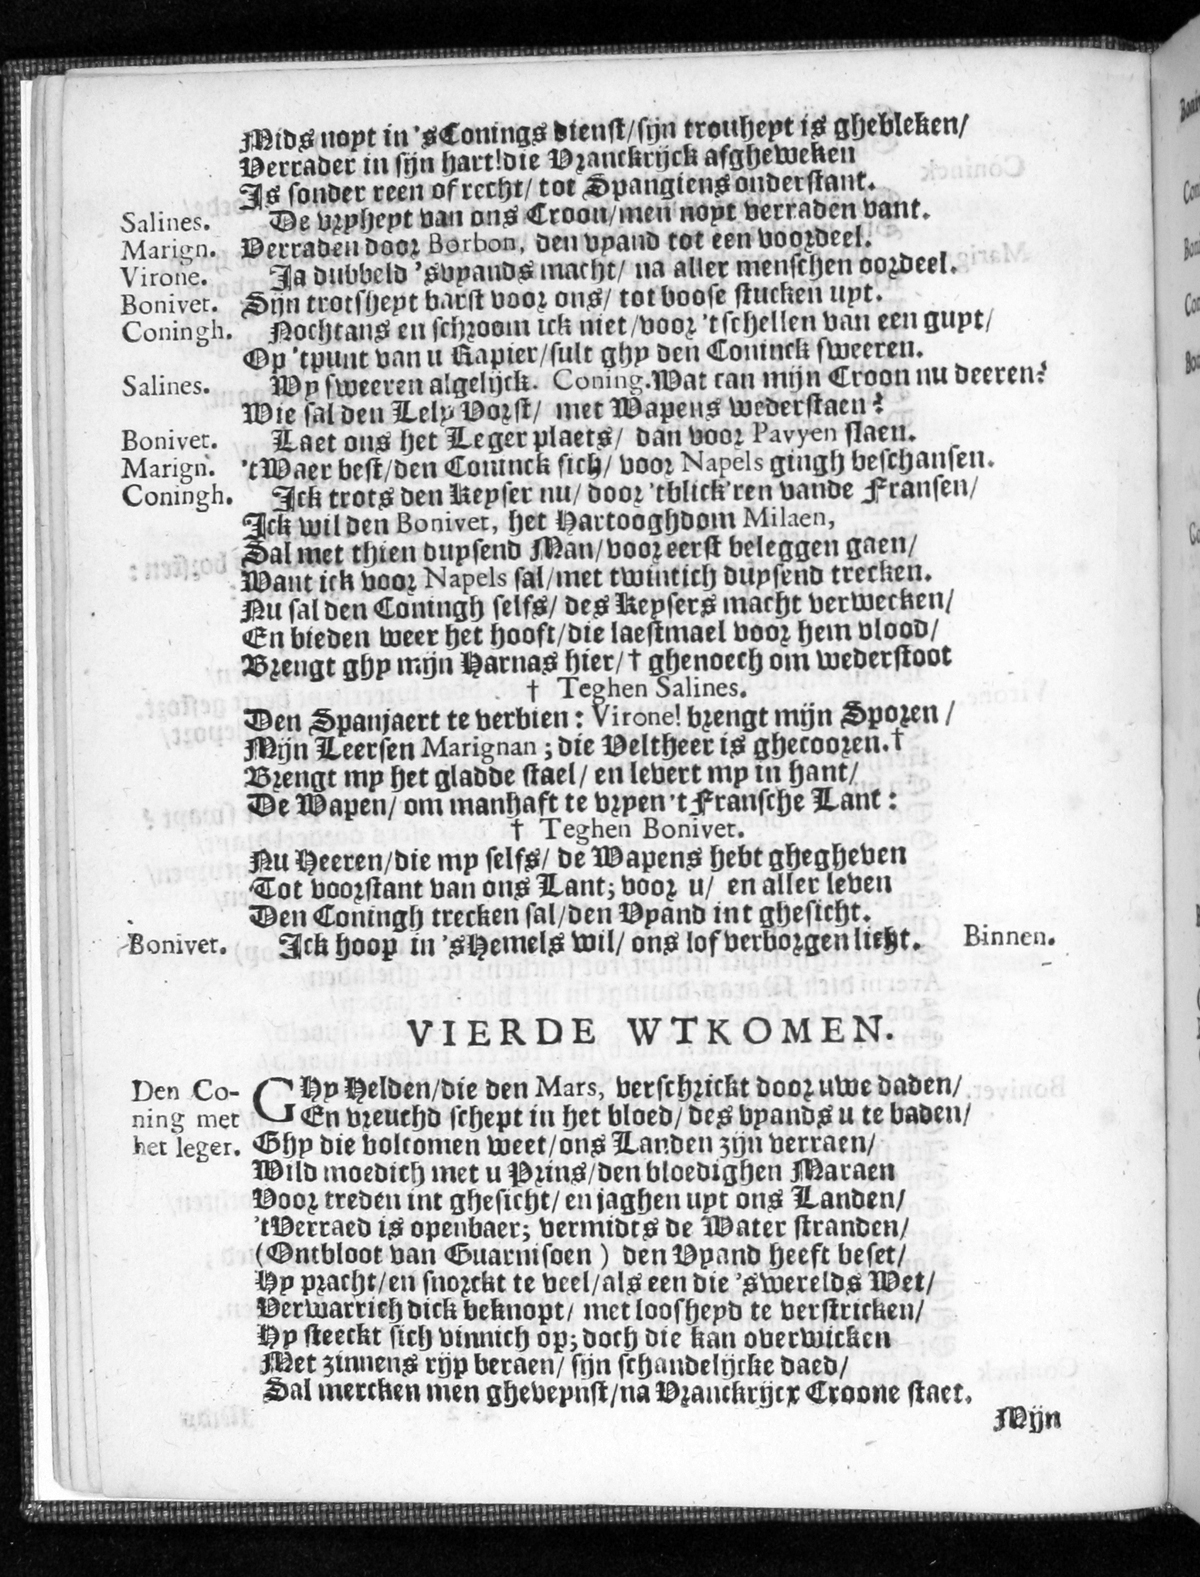 Mids noyt in 'sConings dienst/sijn trouheyt is ghebleken/
Verrader in sijn hart!die Vranckrijck afgheweken
Is sonder reen of recht/ tot Spangiens onderstant.
Salines. De vryheyt van ons Croon/men noyt verraden vant.
Marign. Verraden door Borbon, den vyand tot een voordeel.
Virone. Ja dubbeld 'svyands macht/ na aller menschen oordeel.
Bonivet. Sijn trotsheyt barst voor ons/ tot boose stucken uyt.
Coningh. Nochtans en schroom ick niet/voor 'tschellen van een guyt/
Op 'tpunt van u Rapier/sult ghy den Coninck sweeren.
Salines. Wy sweeren algelijck. Coning.Wat can mijn Croon nu deeren?
Wie sal den Lely Vorst/ met Wapens wederstaen?
Bonivet. Laet ons het Leger plaets/ dan voor Pavyen slaen.
Marign. 'tWaer best/den Coninck sich/ voor Napels gingh beschansen.
Coningh. Ick trots den Keyser nu/ door 'tblick'ren vande Fransen/
Ick wil den Bonivet, het Hartooghdom Milaen,
Sal met thien duysend Man/voor eerst beleggen gaen/
Want ick voor Napels sal/met twintich duysend trecken.
Nu sal den Coningh selfs/ des Keysers macht verwecken/
En bieden weer het hooft/die laestmael voor hem vlood/
Brengt ghy mijn Harnas hier/† ghenoech om wederstoot
† Teghen Salines.
Den Spanjaert te verbien: Virone! brengt mijn Sporen/
Mijn Leersen Marignan; die Veltheer is ghecooren.†
Brengt my het gladde stael/ en levert my in hant/
De Wapen/ om manhaft te vryen 't Fransche Lant:
† Teghen Bonivet.
Nu Heeren/die my selfs/ de Wapens hebt ghegheven
Tot voorstant van ons Lant; voor u/ en aller leven
Den Coningh trecken sal/den Vyand int ghesicht.
Bonivet. Ick hoop in 'sHemels wil/ ons lof verborgen licht. Binnen.
VIERDE WTKOMEN.
Den Co- GHy Helden/die den Mars, verschrickt door uwe daden/
ning met En vreuchd schept in het bloed/des vyands u te baden/
het leger. Ghy die volcomen weet/ons Landen zijn verraen/
Wild moedich met u Prins/den bloedighen Maraen
Voor treden int ghesicht/ en jaghen uyt ons Landen/
'tVerraed is openbaer; vermidts de Water stranden/
(Ontbloot van Guarnisoen) den Vyand heeft beset/
Hy pracht/en snorckt te veel/als een die 'swerelds Wet/
Verwarrich dick beknopt/ met loosheyd te verstricken/
Hy steeckt sich vinnich op; doch die kan overwicken
Met zinnens rijp beraen/ sijn schandelijcke daed/
Sal mercken men gheveynst/na Vranckrijcx Croone staet.
Mijn